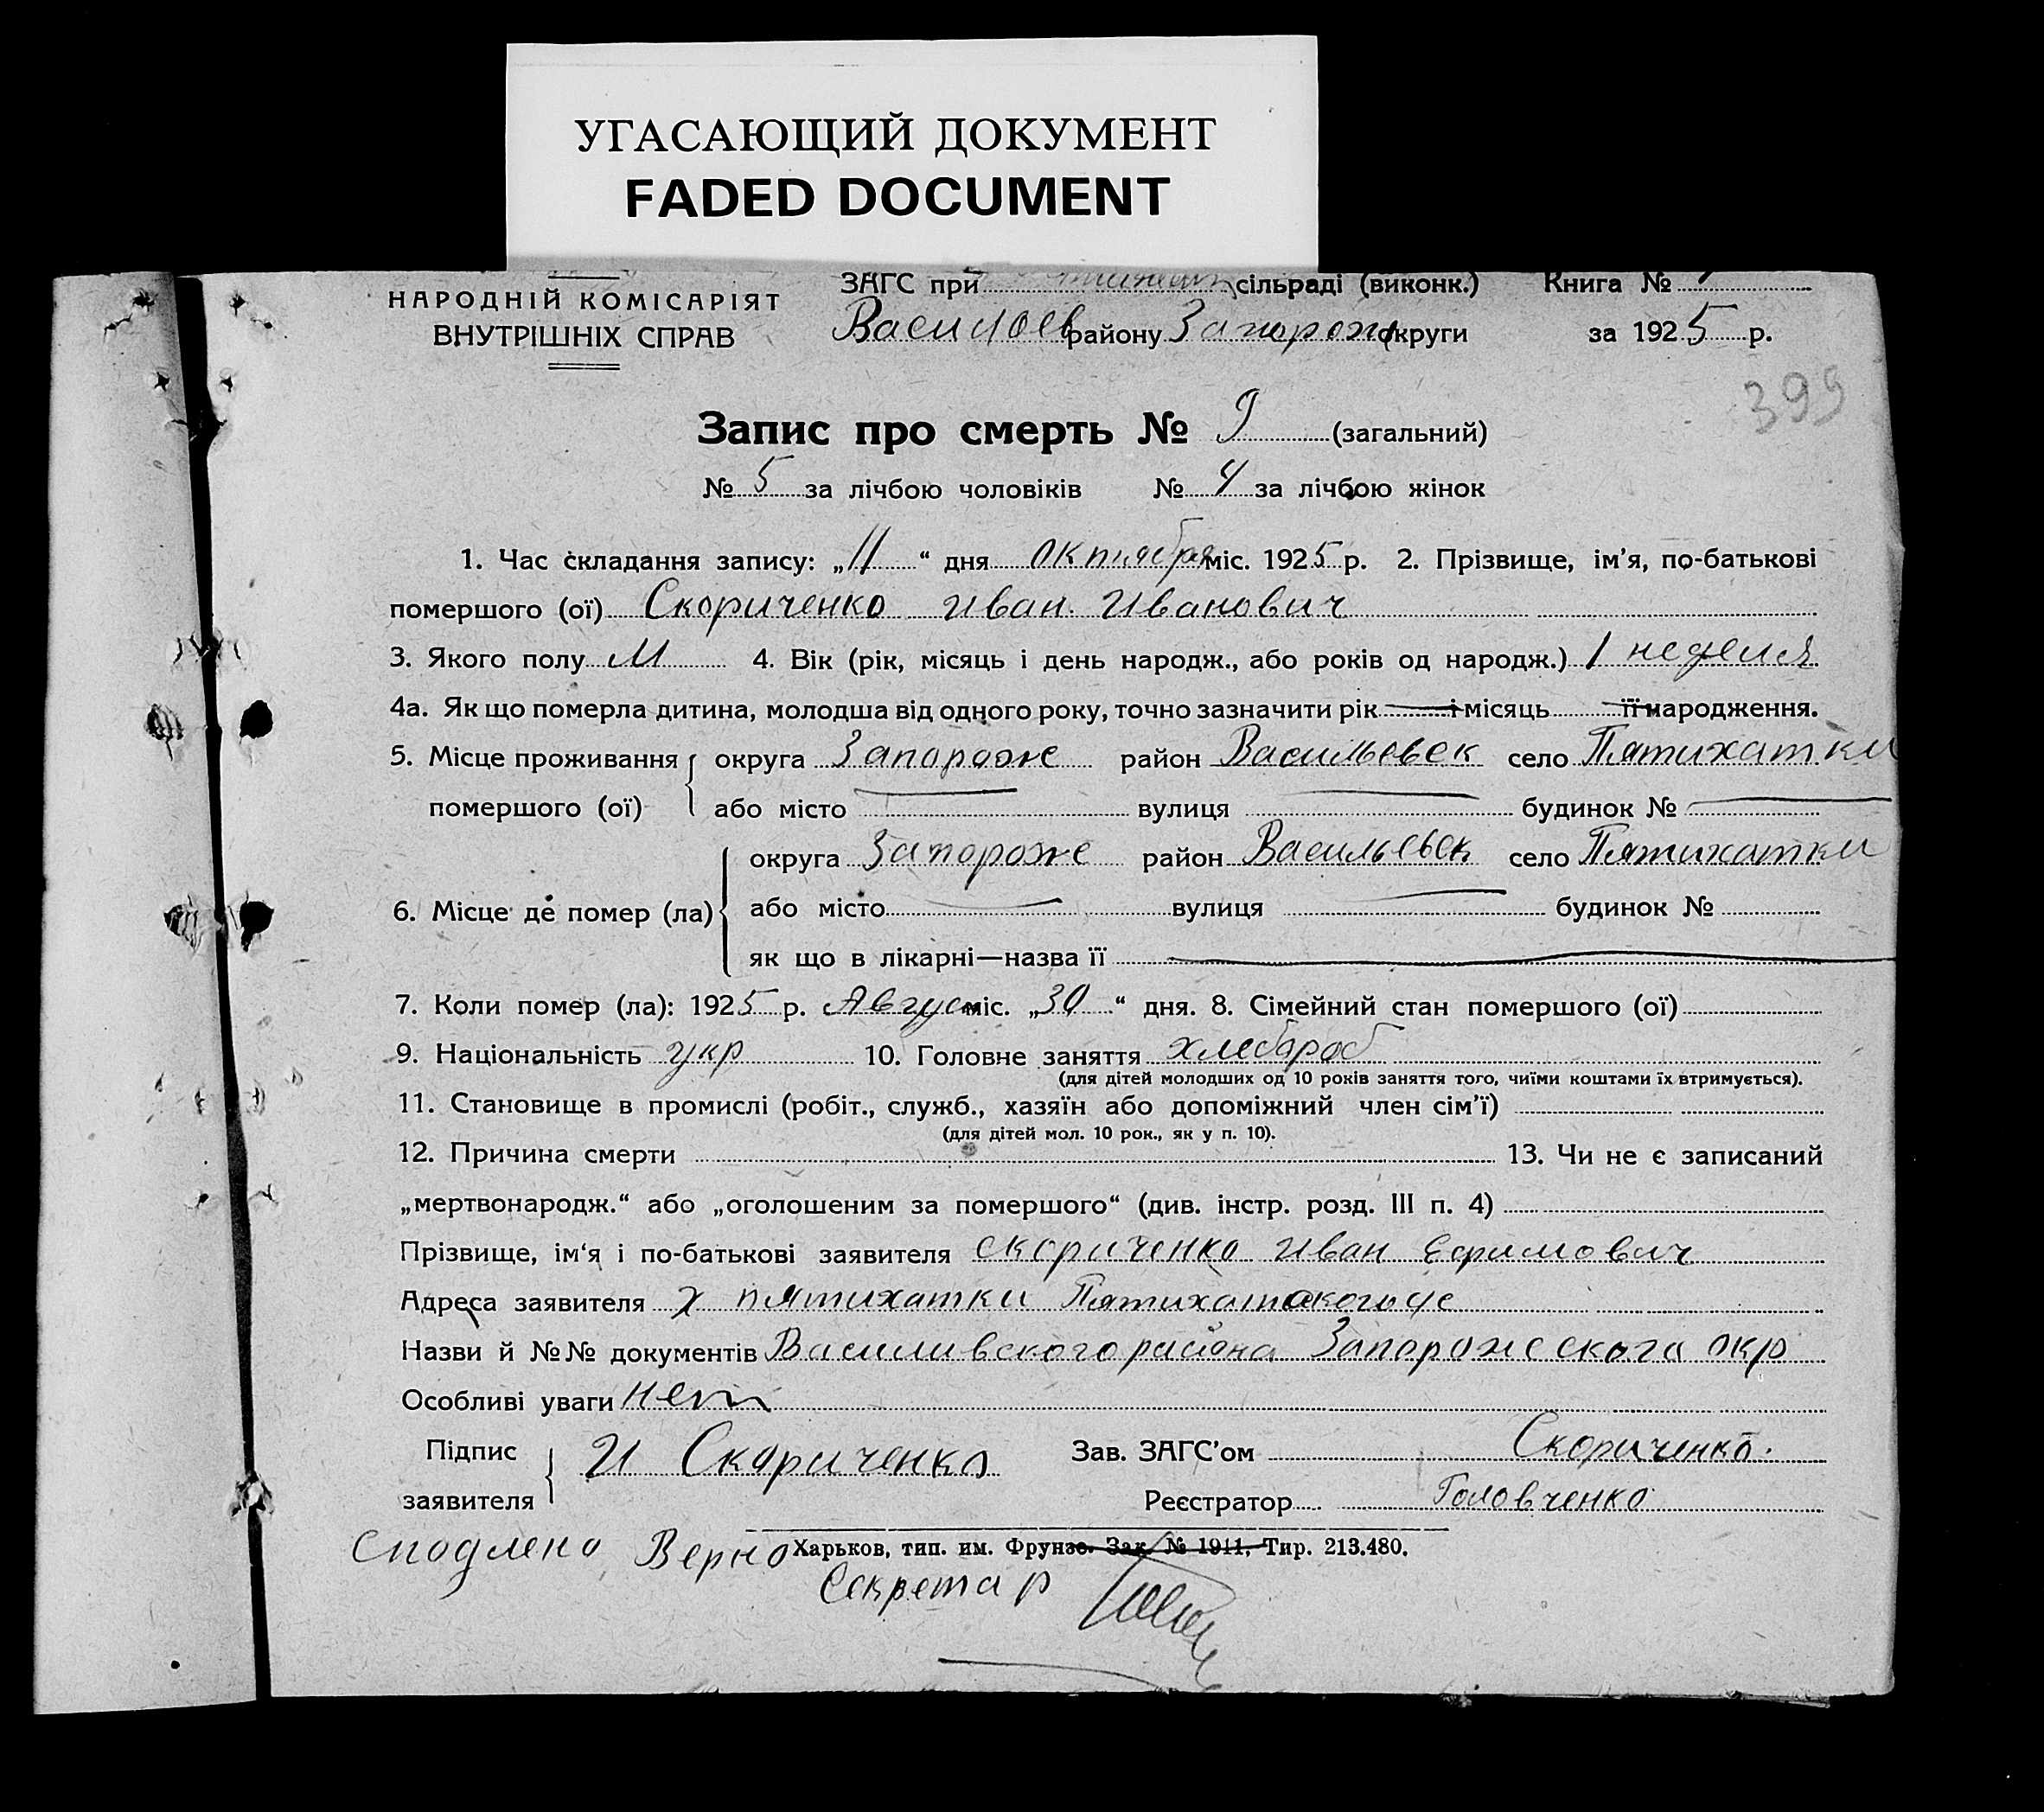 УГАСАЮЩИЙ ДОКУМЕНТ
FADED DOCUMENT
НАРОДНІЙ КОМІСАРІЯТ
ВНУТРІШНІХ СПРАВ
ЗАГС при сільраді (виконк.) Книга №
Василов району Запорож округи за 1925 р.
399
Запис про смерть № 9 (загальний)
№ 5 за лічбою чоловіків № 4 за лічбою жінок
1. Час складання запису: „11“ дня октября міс. 1925 р. 2. Прізвище, ім’я, по-батькові
помершого (ої) Скориченко Иван Иванович
3. Якого полу М 4. Вік (рік, місяць і день народж., або років од народж.) 1 неделя
4а. Як що померла дитина, молодша від одного року, точно зазначити рік і місяць її народження.
5. Місце проживання округа Запороже район Васильевск село Пятихатки
помершого (ої) або місто — вулиця — будинок № —
округа Запороже район Васильевск село Пятихатки
6. Місце де помер (ла) або місто — вулиця — будинок №
як що в лікарні—назва її —
7. Коли помер (ла): 1925 р. Август міс. „30“ дня. 8. Сімейний стан помершого (ої)
9. Національність укр 10. Головне заняття хлебороб
(для дітей молодших од 10 років заняття того, чиїми коштами їх втримується).
11. Становище в промислі (робіт., служб., хазяїн або допоміжний член сім’ї)
(для дітей мол. 10 рок., як у п. 10).
12. Причина смерти 13. Чи не є записаний
„мертвонародж.“ або „оголошеним за помершого“ (див. інстр. розд. III п. 4)
Прізвище, ім‘я і по-батькові заявителя Скориченко Иван Ефимович
Адреса заявителя х пятихатки
Назви й №№ документів Василивского района Запорожеского окр
Особливі уваги нет
Підпис заявителя И Скориченко Зав. ЗАГС’ом Скориченко
Реєстратор Головченко
Харьков, тип. им. Фрунзе. Зак. № 1911, Тир. 213.480.
Верно
Секретар